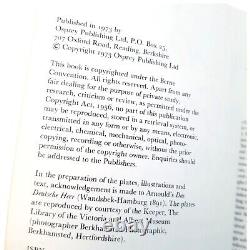 Published in 1973 by
Osprey Publishing Ltd, P.O. Box 25,
707 Oxford Road, Reading, Berkshire
© Copyright 1973 Osprey Publishing Ltd
This book is copyrighted under the Berne
Convention. All rights reserved. Apart from any
fair dealing for the purpose of private study,
research, criticism or review, as permitted under the
Copyright Act, 1956, no part of this publication may
be reproduced, stored in a retrieval system, or
transmitted in any form or by any means, electronic,
electrical, chemical, mechanical, optical, photo-
copying, recording or otherwise, without the prior
permission of the copyright owner. Enquiries should
be addressed to the Publishers.
In the preparation of the plates, illustrations and
text, acknowledgement is made to Arnould's Das
Deutsche Heer (Wandsbek-Hamburg 1891). The plates
are reproduced by courtesy of the Keeper, The
Library of the Victoria and Albert Museum
(photographer Berkhamsted Photographic,
Berkhamsted, Hertfordshire).